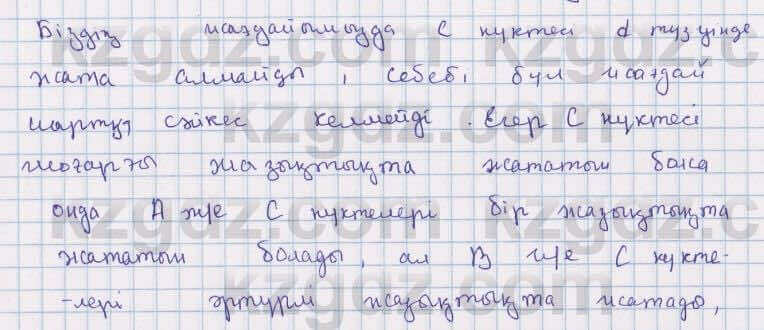 Біздің жағдайымызда С нүктесі d түзуінде
жата алмайды, себебі бұл жағдай
шартқа сәйкес келмейді. Егер С нүктесі
жоғарғы жазықтықта жататын болса
онда А ж/е С нүктелері бір жазықтықта
жататын болады, ал В ж/е С нүкте-
-лері әртүрлі жазықтықта жатады,